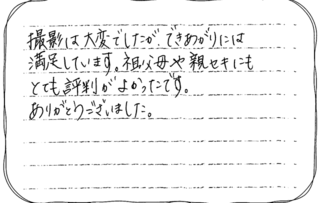 撮影は大変でしたが、できあがりには
満足しています。祖父母や親セキにも
とても評判がよかったです。
ありがとうございました。